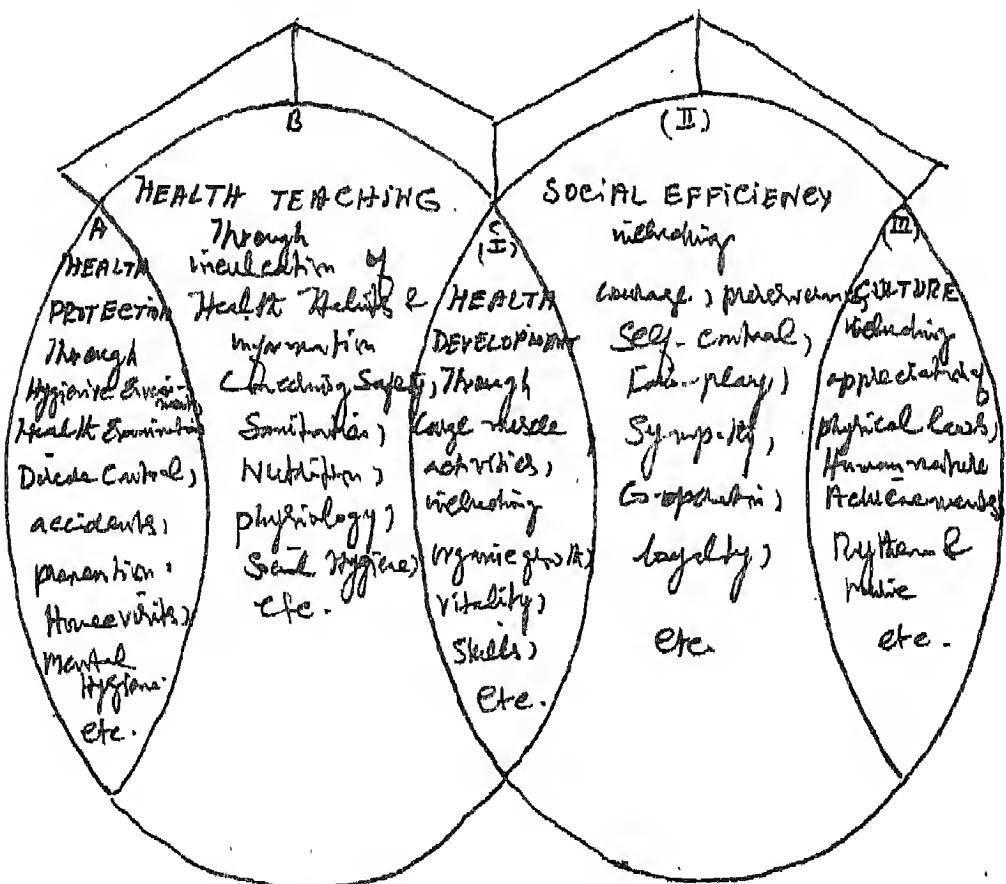 B
HEALTH TEACHING
Through
inculcation of
Health Habits &
information
Concerning Safety,
Sanitation,
Nutrition,
physiology,
Social Hygiene,
etc.
A
HEALTH
PROTECTION
Through
Hygienic Environments,
Health Examination
Disease Control,
accidents,
prevention,
Home visits,
Mental
Hygiene.
etc.
C
(I)
HEALTH
DEVELOPMENT
Through
large muscle
activities,
including
organic growth,
vitality,
skills,
etc.
(II)
SOCIAL EFFICIENCY
including
courage, perseverance,
Self-control,
Fair-play,
Sympathy,
Co-operation,
loyalty,
etc.
(III)
CULTURE
including
appreciation of
physical
Human nature
Achievements,
Rythm &
music
etc.